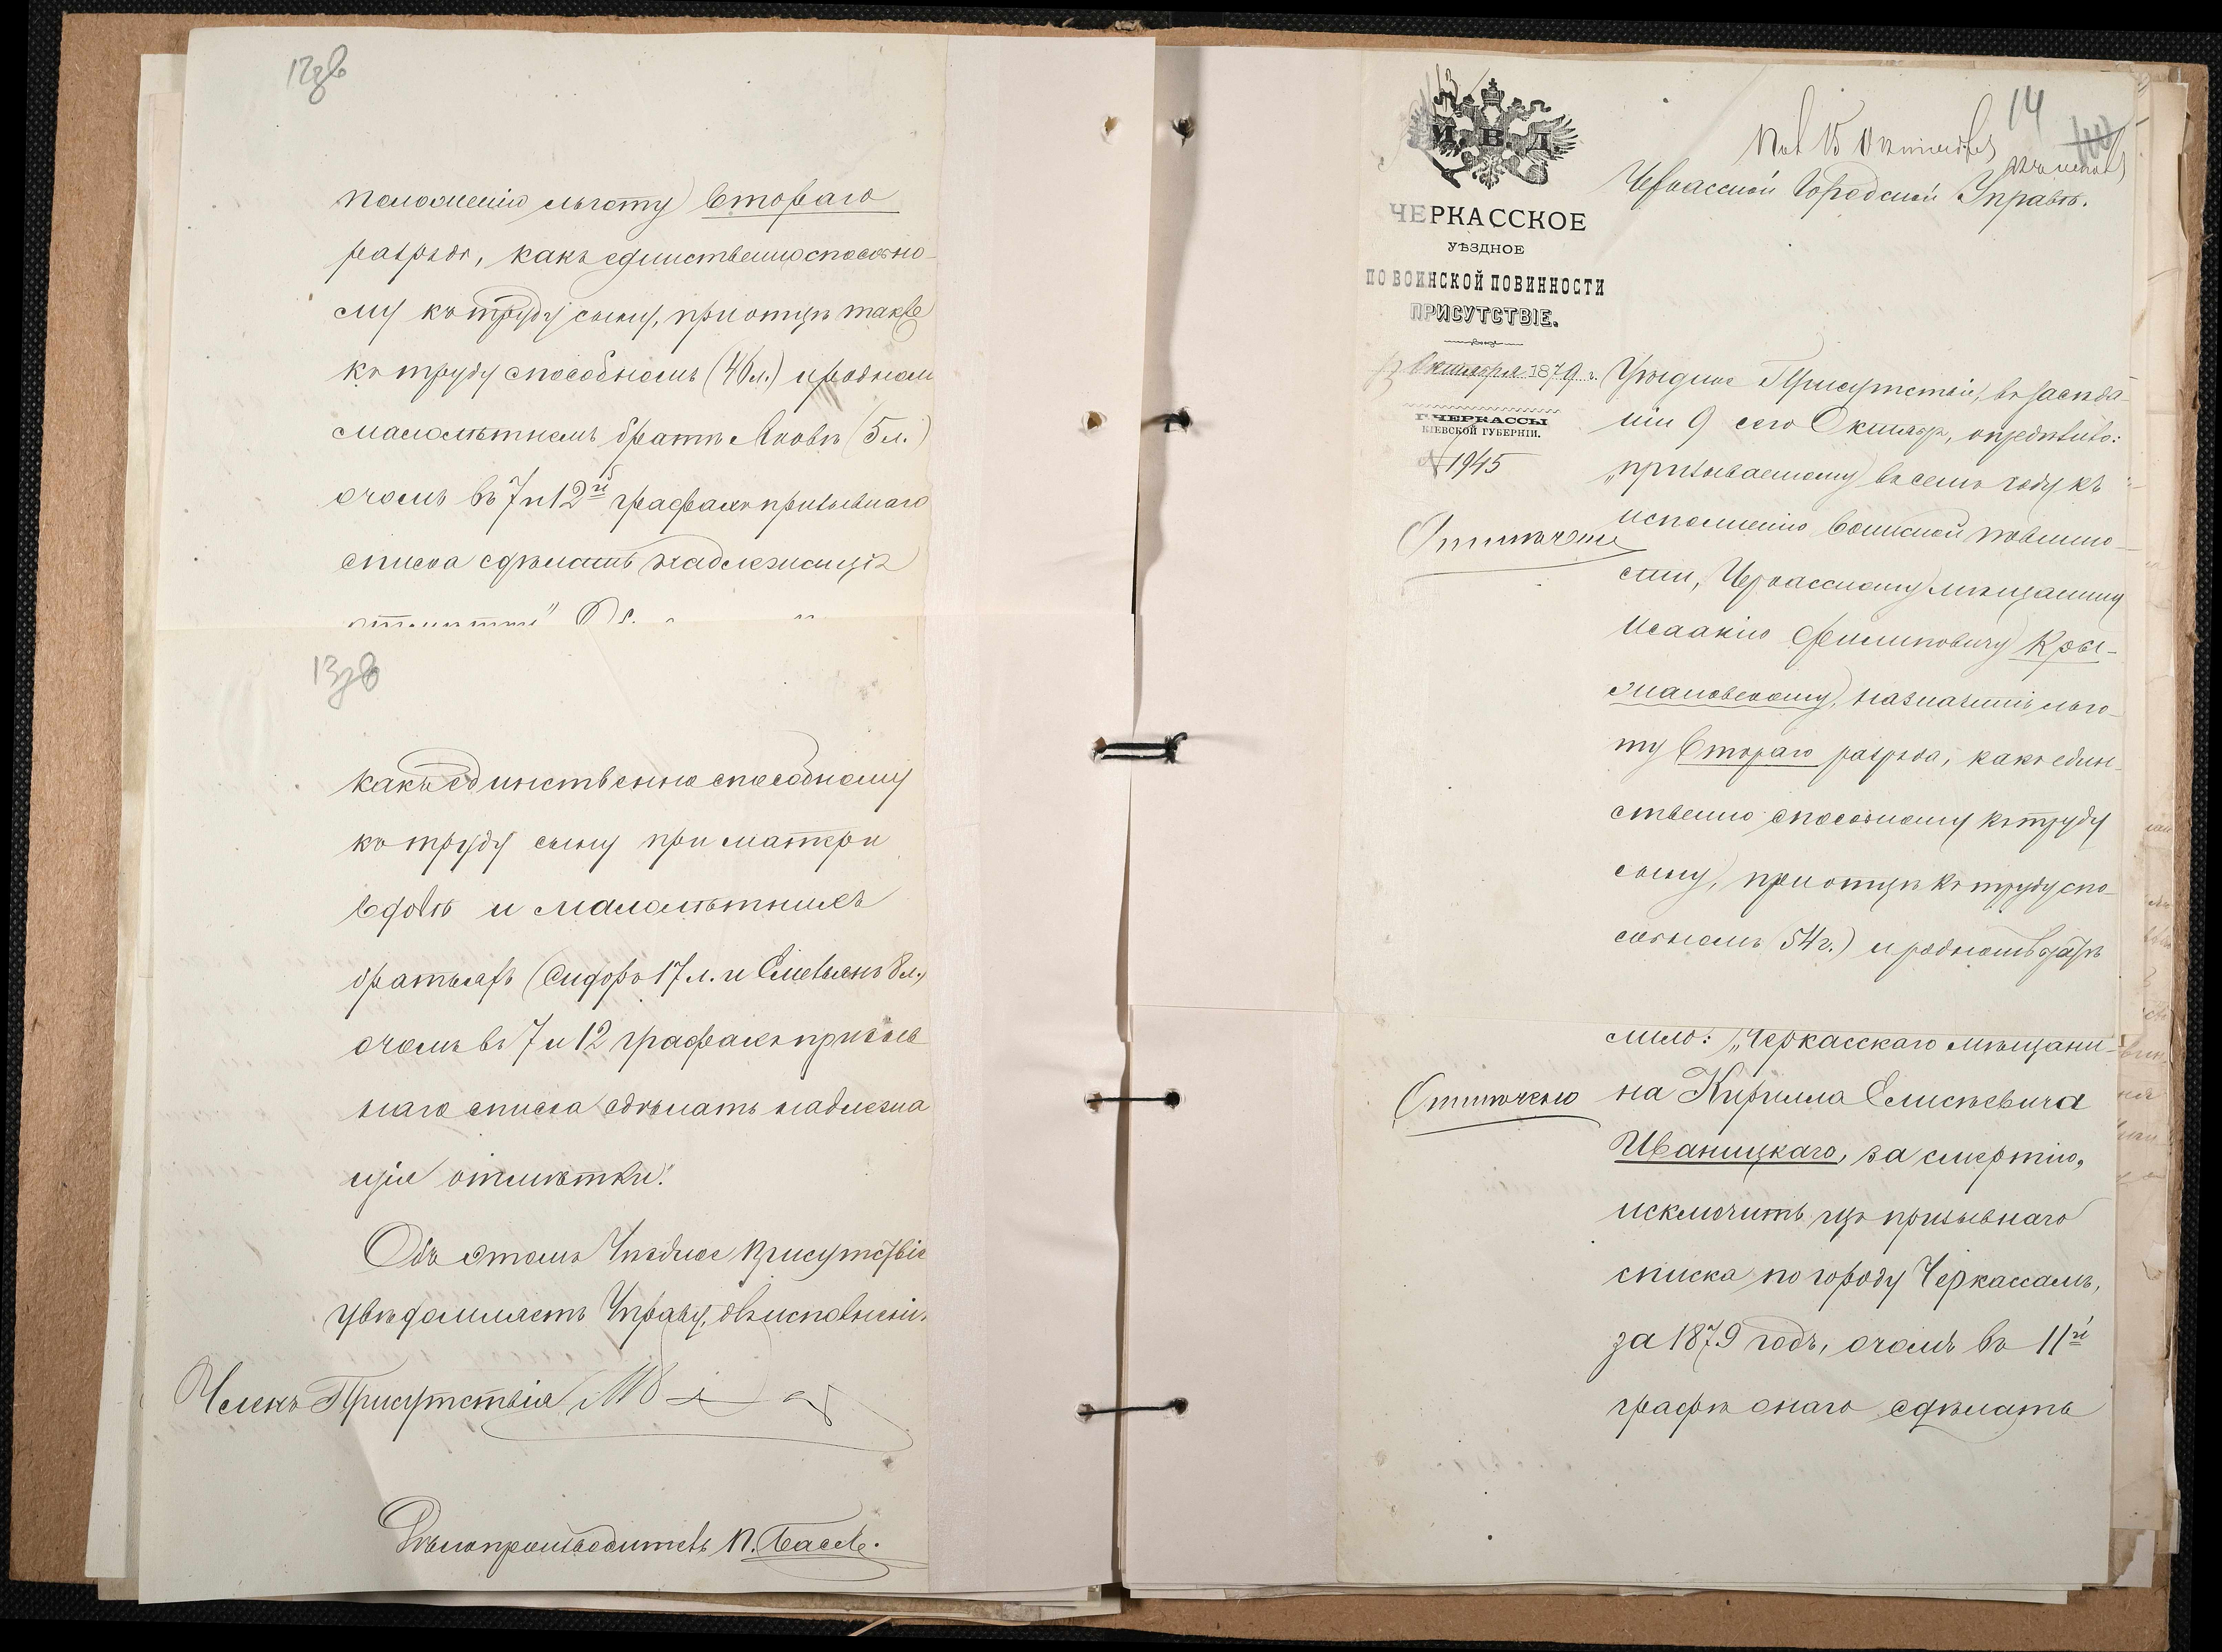 12зв
положенію льготу второго
разряда, какъ единственно способно-
му къ труду сыну, при отцѣ также
къ труду способномъ (46 л.) и родном
малолѣтнемъ братѣ Яковѣ (5 л.)
о чемъ въ 7 и 12й графахъ призывнаго
списка сдѣлать надлежащія
отмѣтки"
13зв
какъ единственно способному
къ труду сыну при матери
вдовѣ и малолѣтнихъ
братьяхъ (Сидоръ 17 л. и Емельянъ 8 л.)
о чемъ въ 7 и 12 графахъ призыв-
наго списка сдѣлать надлежа
щія отмѣтки."
Объ этомъ Уѣздное Присутствіе
увѣдомляетъ Управу, для исполненія.
Членъ Присутствія
Дѣлопроизводитель П.
13
14
И. В. Д.
ЧЕРКАССКОЕ
УѢЗДНОЕ
ПО ВОИНСКОЙ ПОВИННОСТИ
ПРИСУТСТВІЕ.
Октября 1879 г.
Г. ЧЕРКАССЫ
КІЕВСКОЙ ГУБЕРНІИ.
№ 1945
15 Октября
Черкасской Городской Управѣ.
Уѣздное Присутствіе, въ засѣда-
ніи 9 сего Октября, опредѣлило:
"призываемому въ семъ году къ
исполненію воинской повинно-
Отмѣчено
сти, Черкасскому мѣщанину
Исаакію Филиповичу Кры-
жановскому, назначить льго-
ту второго разряда, какъ един-
ственно способному къ труду
сыну, при отцѣ къ труду спо-
собномъ 54 г.) и родномъ братѣ
мило: "Черкасскаго мѣщани-
Отмѣчено
на Кирилла Елисѣевича
Иваницкаго, за смертію,
исключить изъ призывнаго
списка по городу Черкассамъ,
за 1879 годъ, о чемъ въ 11й
графѣ онаго сдѣлать